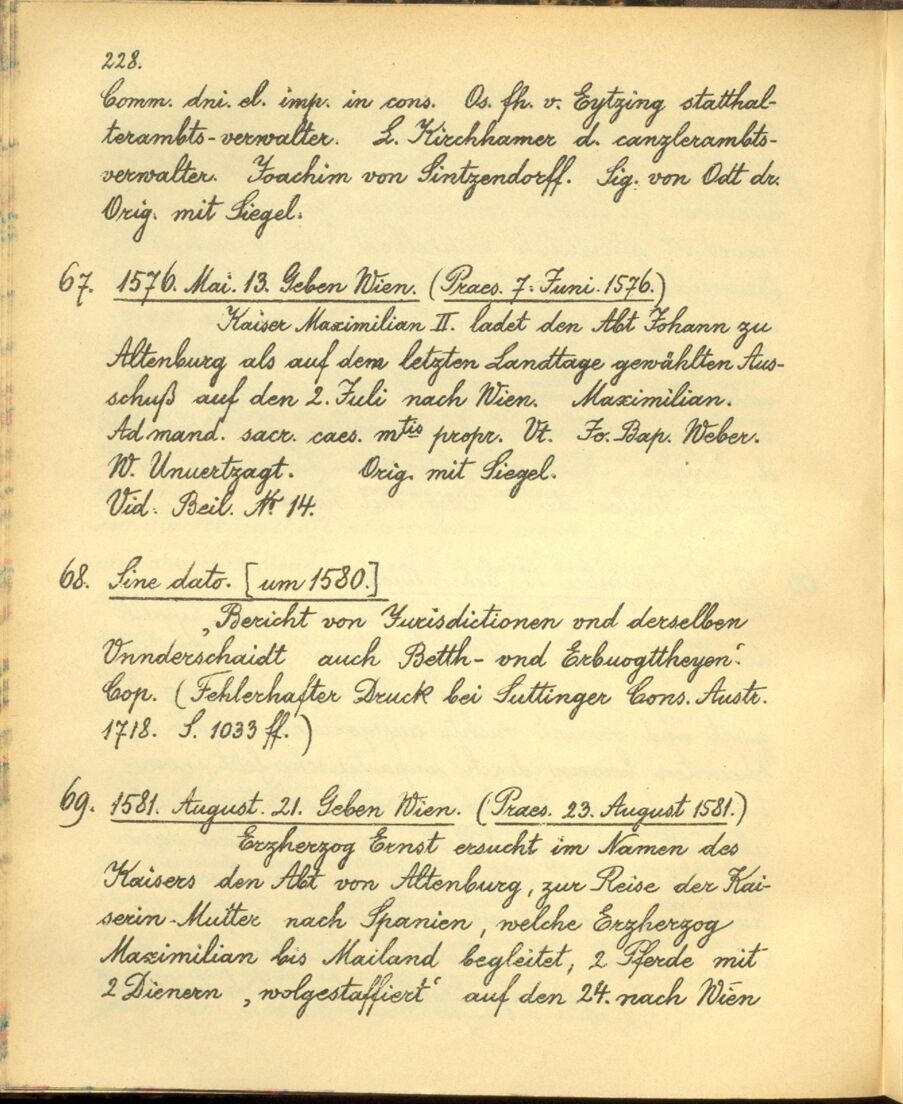 228.
Comm. dni. el. imp. in cons. Os. fh. v. Eytzing statthal-
terambts-verwalter. L. Kirchhamer d. canzlerambts-
verwalter. Joachim von Sintzendorff. Sig. von Odt dr.
Orig. mit Siegel.
67. 1576. Mai. 13. Geben Wien. (Praes. 7. Juni. 1576.)
Kaiser Maximilian II. ladet den Abt Johann zu
Altenburg als auf dem letzten Landtage gewählten Aus-
schuß auf den 2. Juli nach Wien. Maximilian.
Ad mand. sacr. caes. mtis propr. Vt. Jo. Bap. Weber.
W. Unuertzagt. Orig. mit Siegel.
Vid. Beil. Nr. 14.
68. Sine dato. [um 1580.]
„Bericht von Jurisdictionen vnd derselben
Vnnderschaidt auch Betth- vnd Erbuogttheyen“.
Cop. (Fehlerhafter Druck bei Suttinger Cons. Austr.
1718. S. 1033 ff.)
69. 1581. August. 21. Geben Wien. (Praes. 23. August 1581.)
Erzherzog Ernst ersucht im Namen des
Kaisers den Abt von Altenburg, zur Reise der Kai-
serin-Mutter nach Spanien, welche Erzherzog
Maximilian bis Mailand begleitet, 2 Pferde mit
2 Dienern „wolgestaffiert“ auf den 24. nach Wien